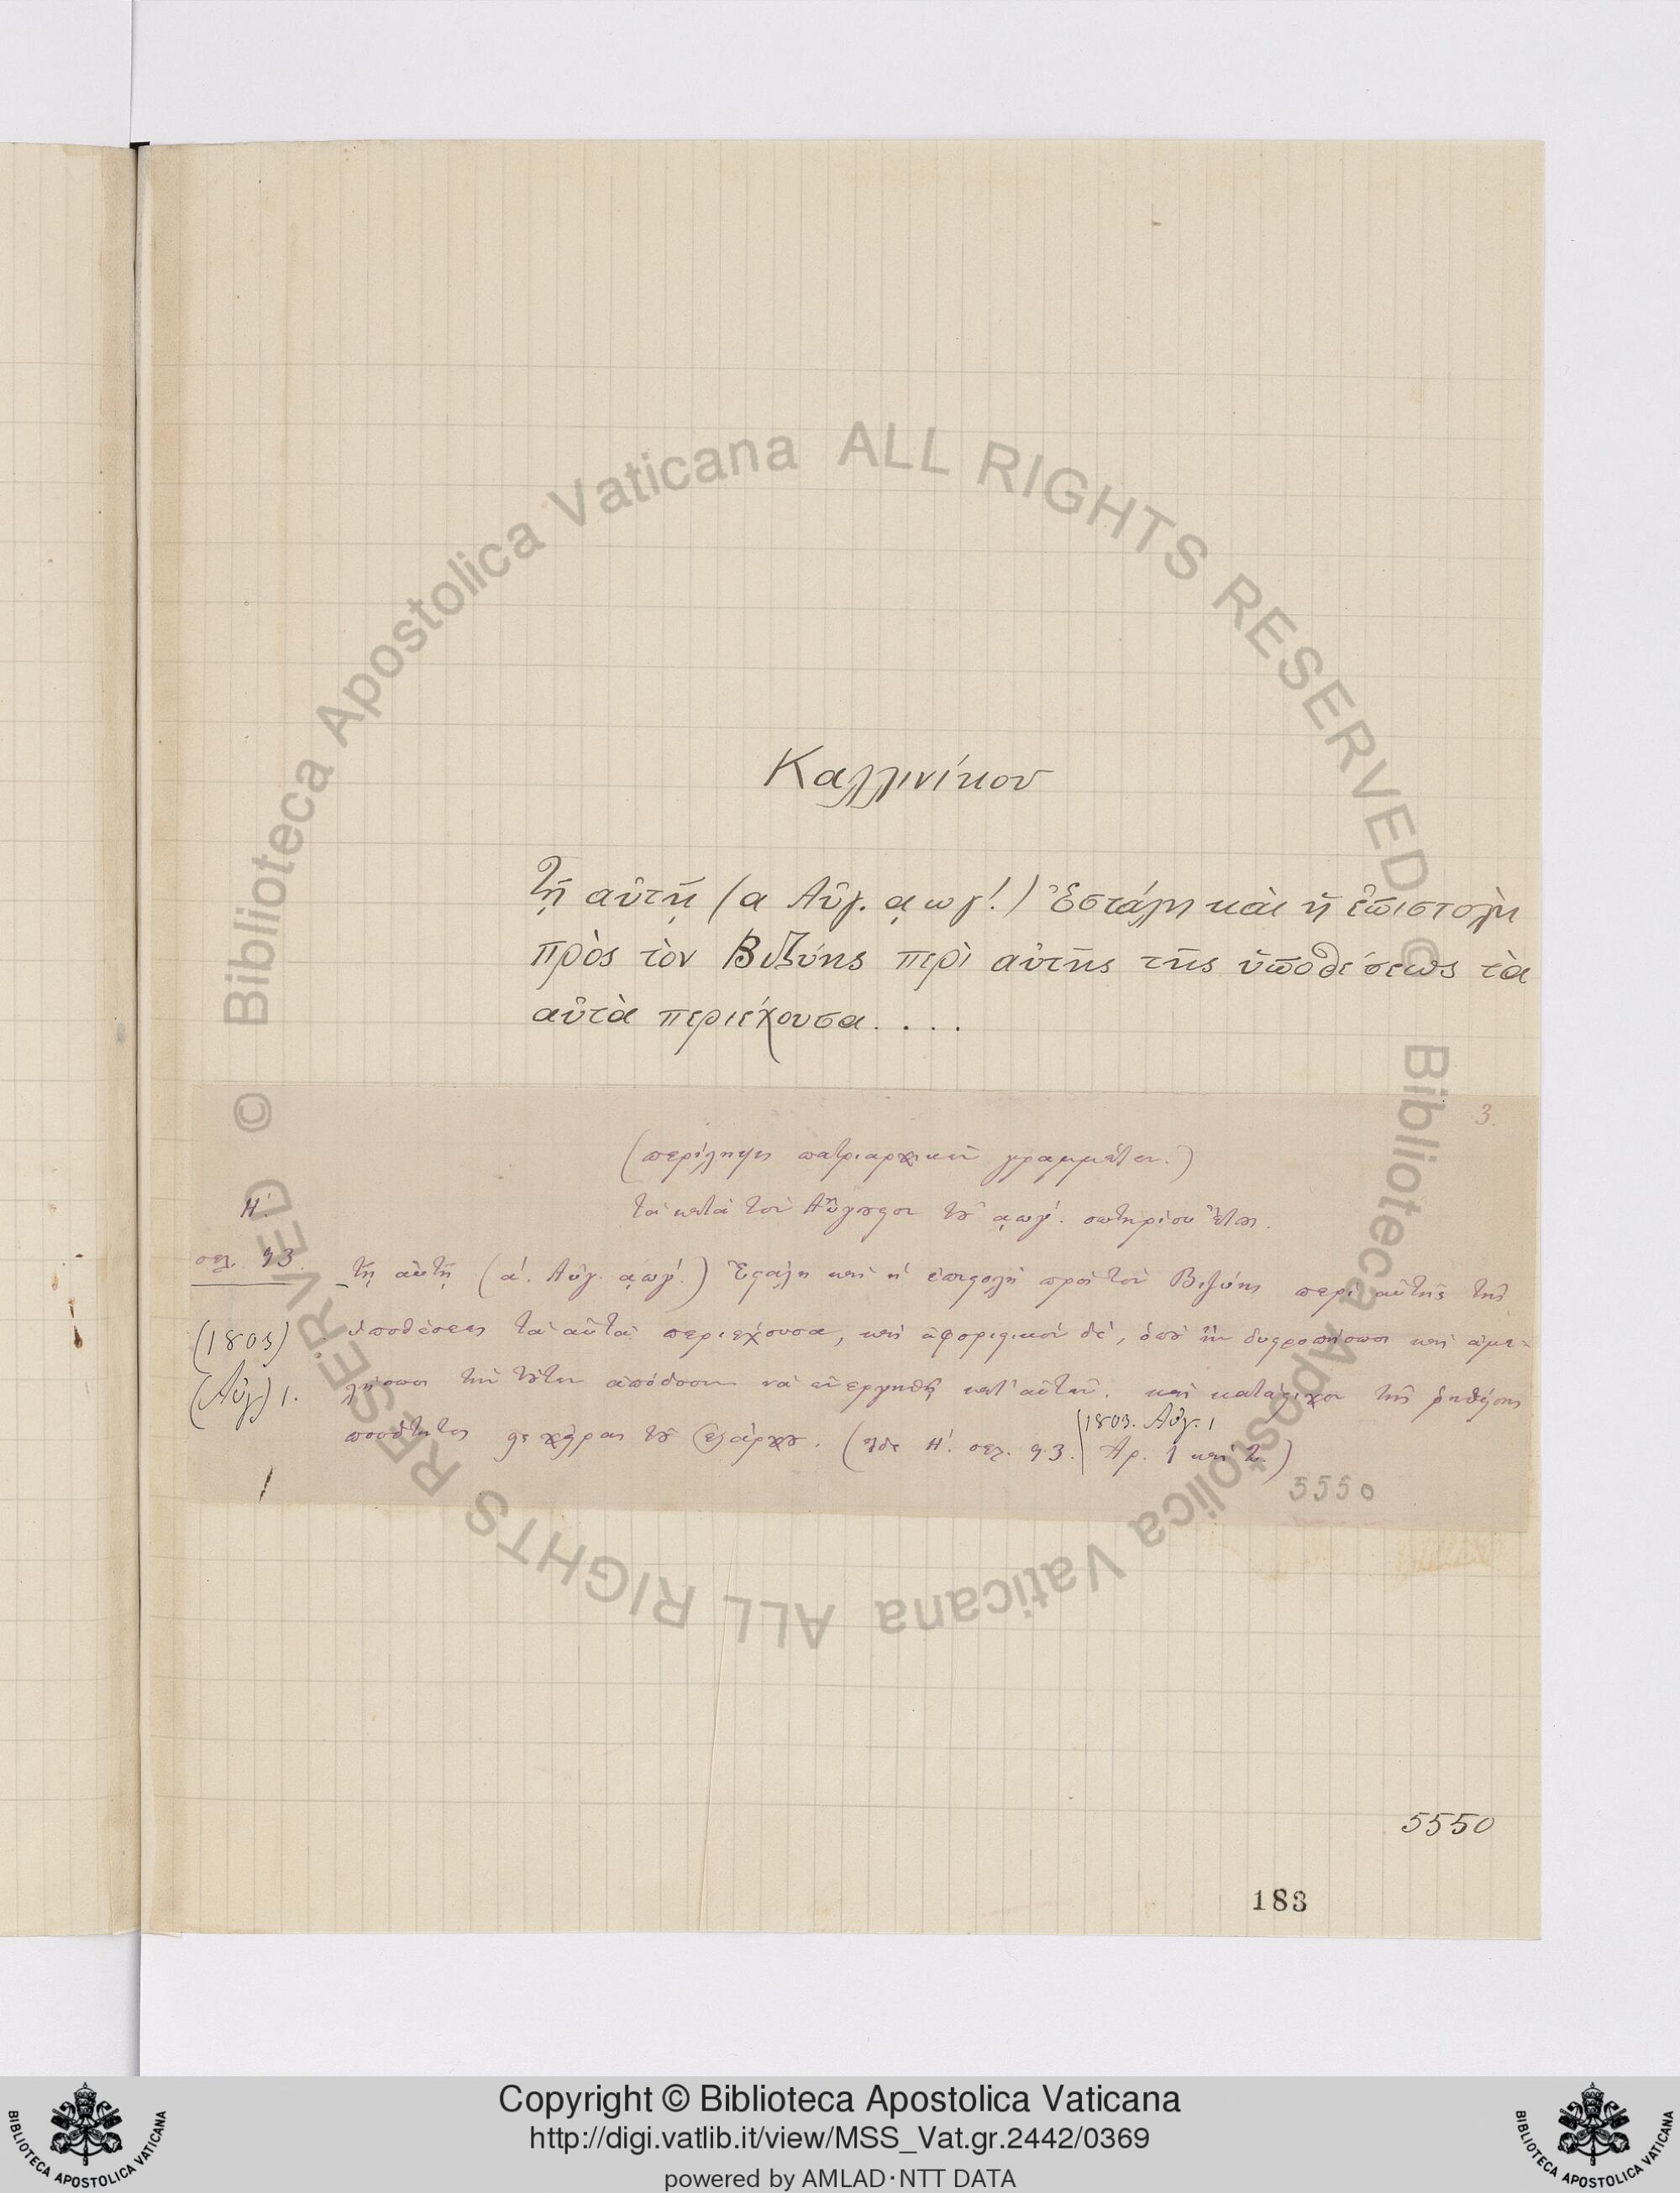 Καλλινίκου
Τῇ αὐτῇ (α Αὐγ. ͵αωγ΄.) Ἐστάλη καὶ ἡ ἐπιστολὴ
πρὸς τὸν Βιζύης περὶ αὐτῆς τῆς ὑποθέσεως τὰ
αὐτὰ περιέχουσα....
3.
(περίληψις πατριαρχικῶν γραμμάτων.)
Η΄.
τὰ κατὰ τὸν Αὔγουστον τοῦ ͵αωγ΄. σωτηρίου ἔτους.
σελ. 93.
τῇ αὐτῇ (α΄. Αὐγ. ͵αωγ΄.) Ἐστάλη καὶ ἡ ἐπιστολὴ πρὸς τὸν Βιζύης περὶ αὐτῆς τῆς
(1803)
ὑποθέσεως τὰ αὐτὰ περιέχουσα, καὶ ἀφοριστικὸν δὲ, δυστροπήσωσι καὶ ἀμε-
(Αὐγ) 1.
λήσωσι τὴν τούτων ἀπόδοσιν νὰ ἐνεργηθῇ κατ' αὐτῶν. καὶ τῆς ῥηθείσης
1803. Αὐγ. 1
ποσότητος χεῖρας τοῦ ἐξάρχου. Η΄. σελ. 93. Αρ. 1 καὶ 2.)
5550
5550
183
Biblioteca Apostolica Vaticana ALL RIGHTS RESERVED ©
Biblioteca Apostolica Vaticana ALL RIGHTS RESERVED ©
Copyright © Biblioteca Apostolica Vaticana
http://digi.vatlib.it/view/MSS_Vat.gr.2442/0369
powered by AMLAD·NTT DATA
BIBLIOTECA APOSTOLICA VATICANA
BIBLIOTECA APOSTOLICA VATICANA